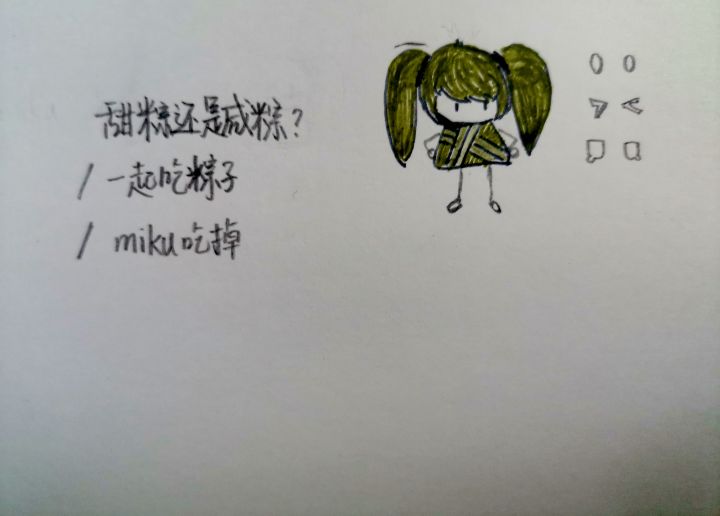 甜粽还是咸粽?
/ 一起吃粽子
/ miku吃掉